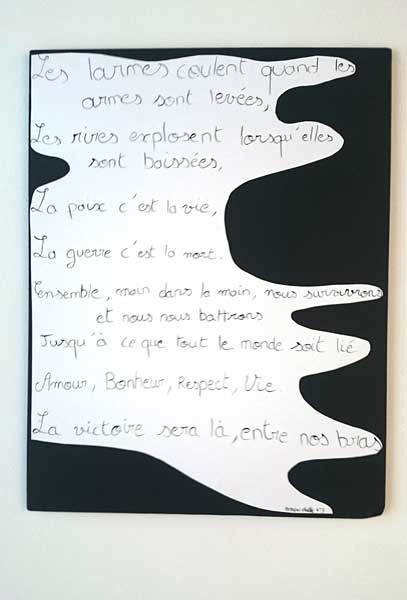 Les larmes coulent quand les
armes sont levées,
Les rires explosent lorsqu'elles
sont baissées,
La paix c'est la vie,
La guerre c'est la mort.
Ensemble, main dans la main, nous survivrons
et nous nous battrons
Jusqu'à ce que tout le monde soit lié
Amour, Bonheur, Respect, Vie.
La victoire sera là, entre nos bras